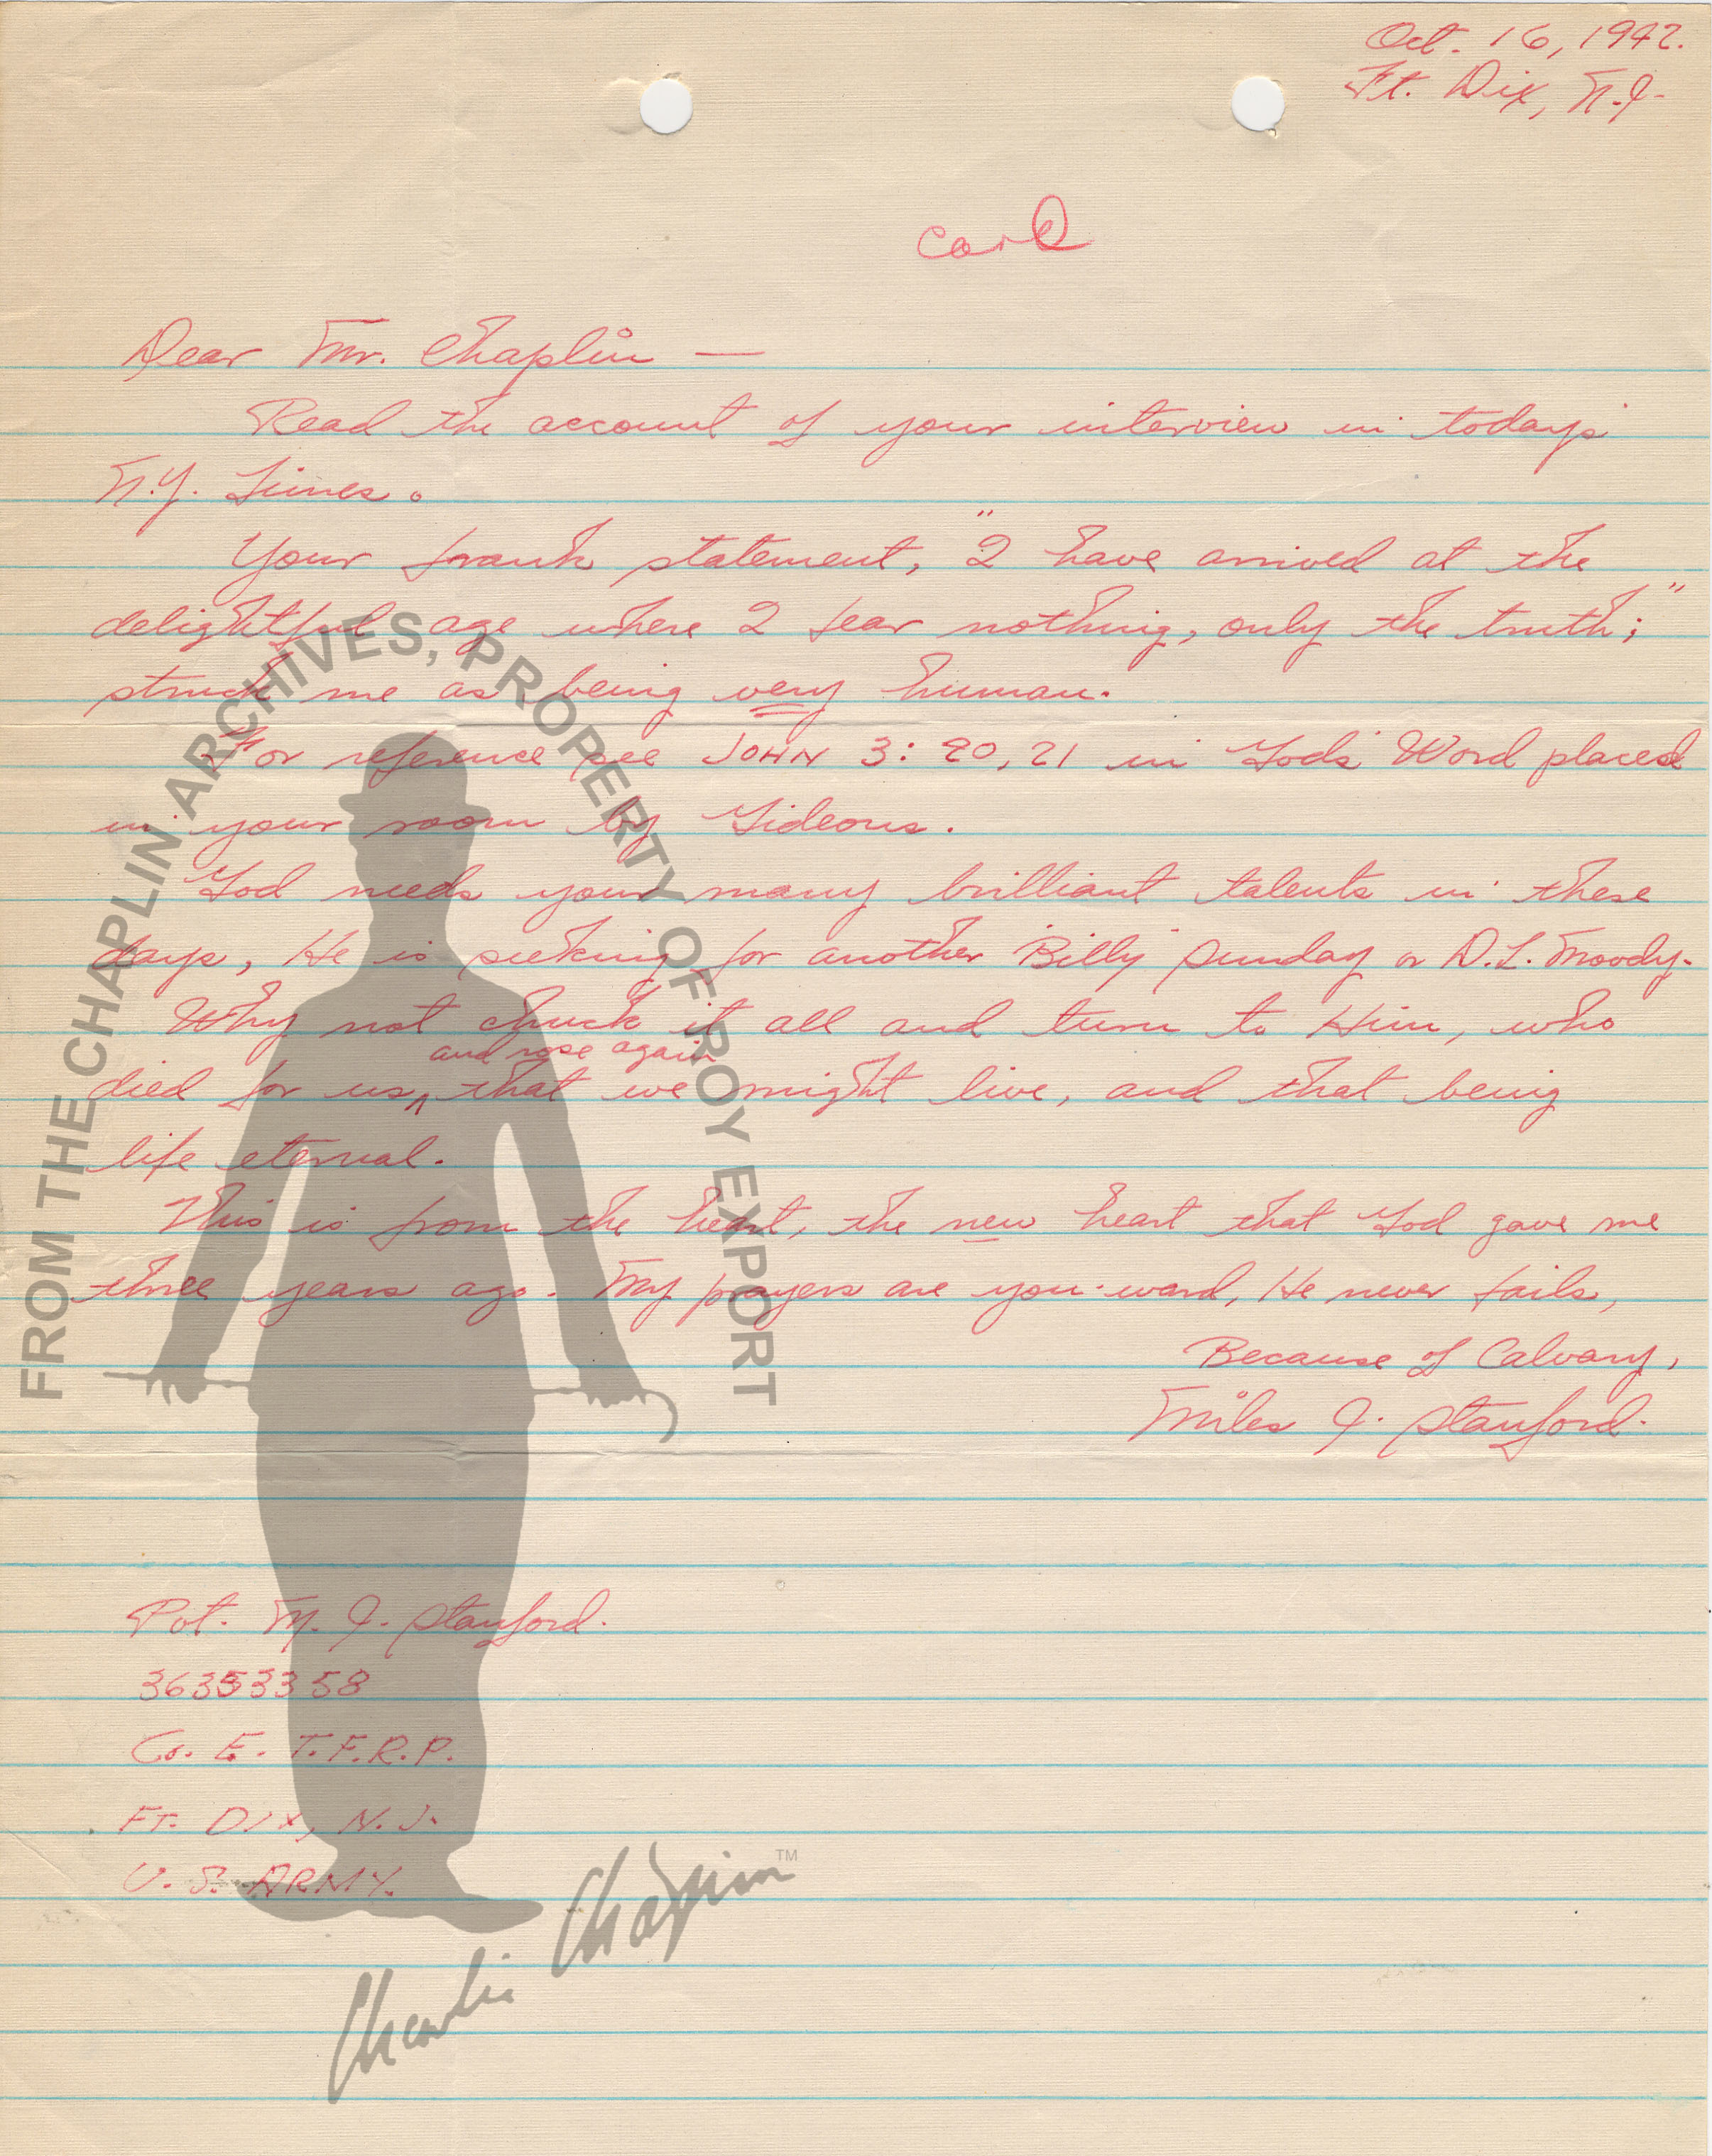 Oct. 16, 1942.
Ft. Dix, N.J.
Dear Mr. Chaplin —
Read the account of your interview in today's
N.Y. Times.
Your frank statement, "I have arrived at the
delightful age where I fear nothing, only the truth;"
struck me as being very human.
For reference see JOHN 3:20,21 in God's Word placed
in your room by Gideons.
God needs your many brilliant talents in these
days, He is seeking for another 'Billy' Sunday or D.L. Moody.
Why not chuck it all and turn to Him, who
and rose again
died for us, ^ that we might live, and that being
life eternal.
This is from the heart, the new heart that God gave me
three years ago. My prayers are you-ward, He never fails,
Because of Calvary,
Miles J. Stanford.
Pvt. M. J. Stanford.
36353358
Co. E. T.F.R.P.
FT. DIX, N.J.
U.S. ARMY.
FROM THE CHAPLIN ARCHIVES, PROPERTY OF ROY EXPORT
Charlie Chaplin TM